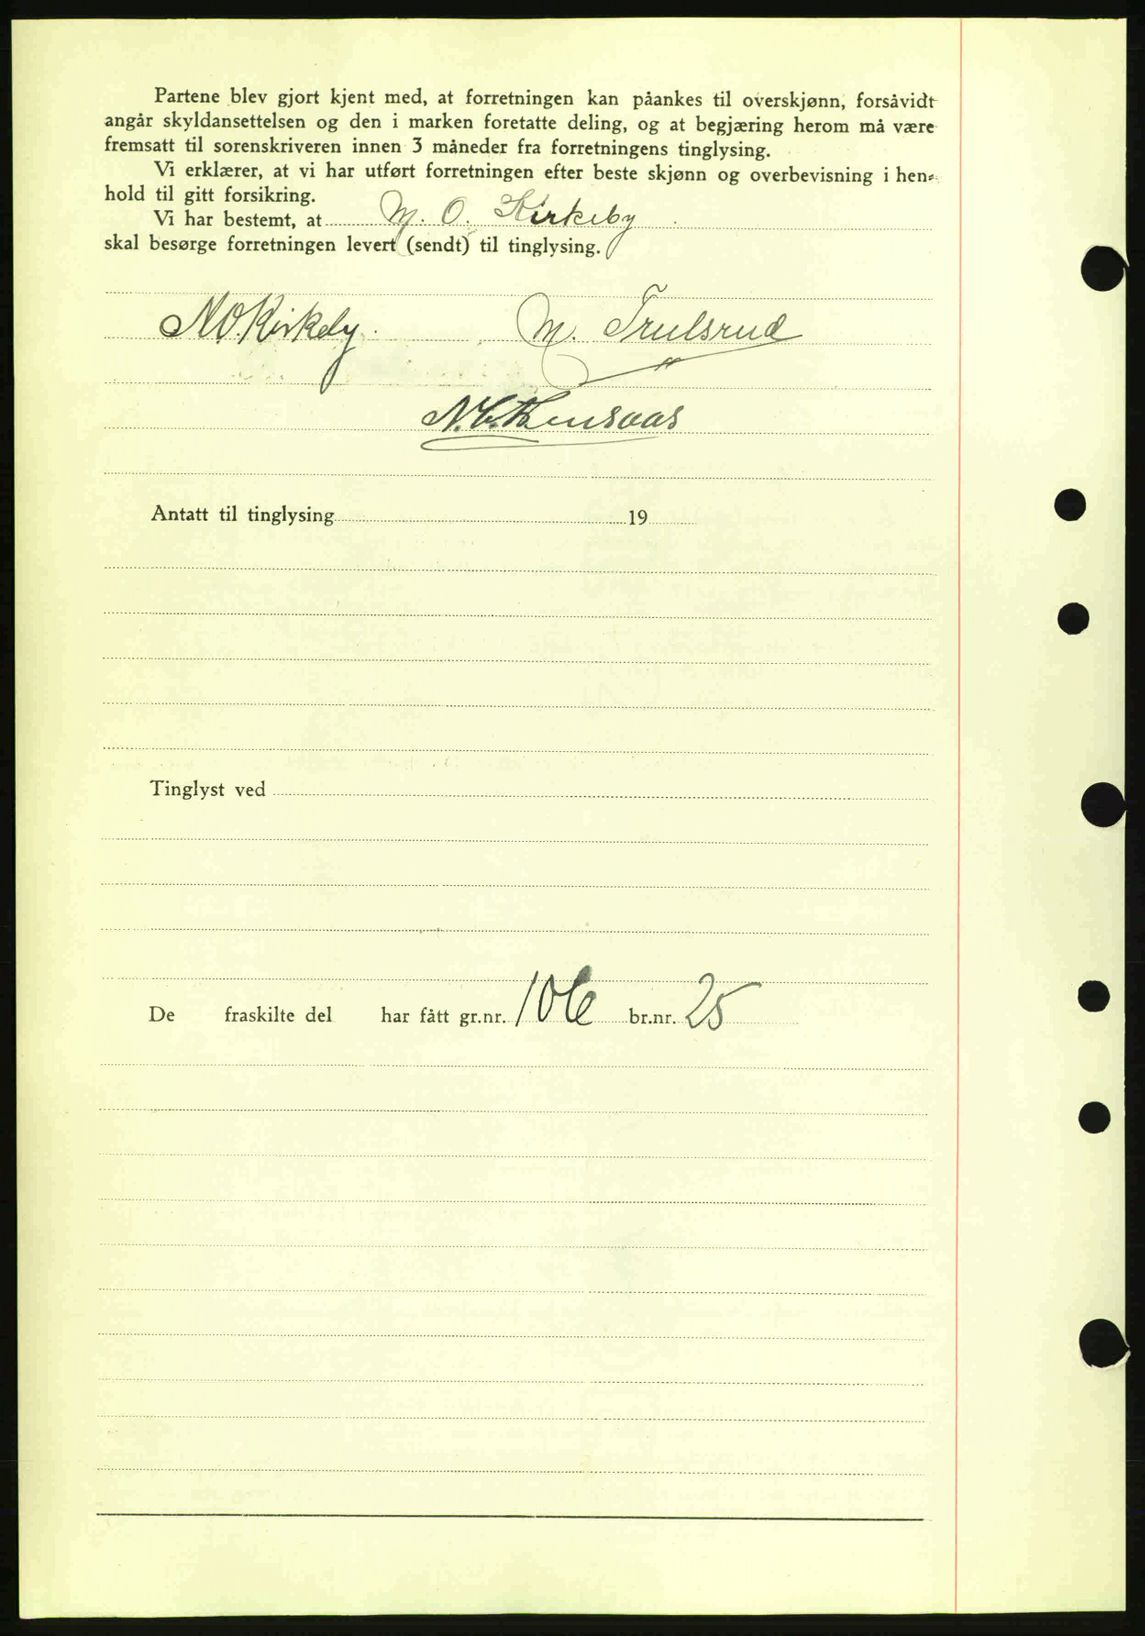 Partene blev gjort kjent med, at forretningen kan påankes til overskjønn, forsåvidt
angår skyldansettelsen og den i marken foretatte deling, og at begjæring herom må være
fremsatt til sorenskriveren innen 3 måneder fra forretningens tinglysing.
Vi erklærer, at vi har utført forretningen efter beste skjønn og overbevisning i hen-
hold til gitt forsikring.
Vi har bestemt, at M. O. Kirkeby
skal besørge forretningen levert (sendt) til tinglysing.
M. O. Kirkeby. M. Trulsrud
Antatt til tinglysing 19
Tinglyst ved
De fraskilte del har fått gr.nr. 106 br.nr. 25